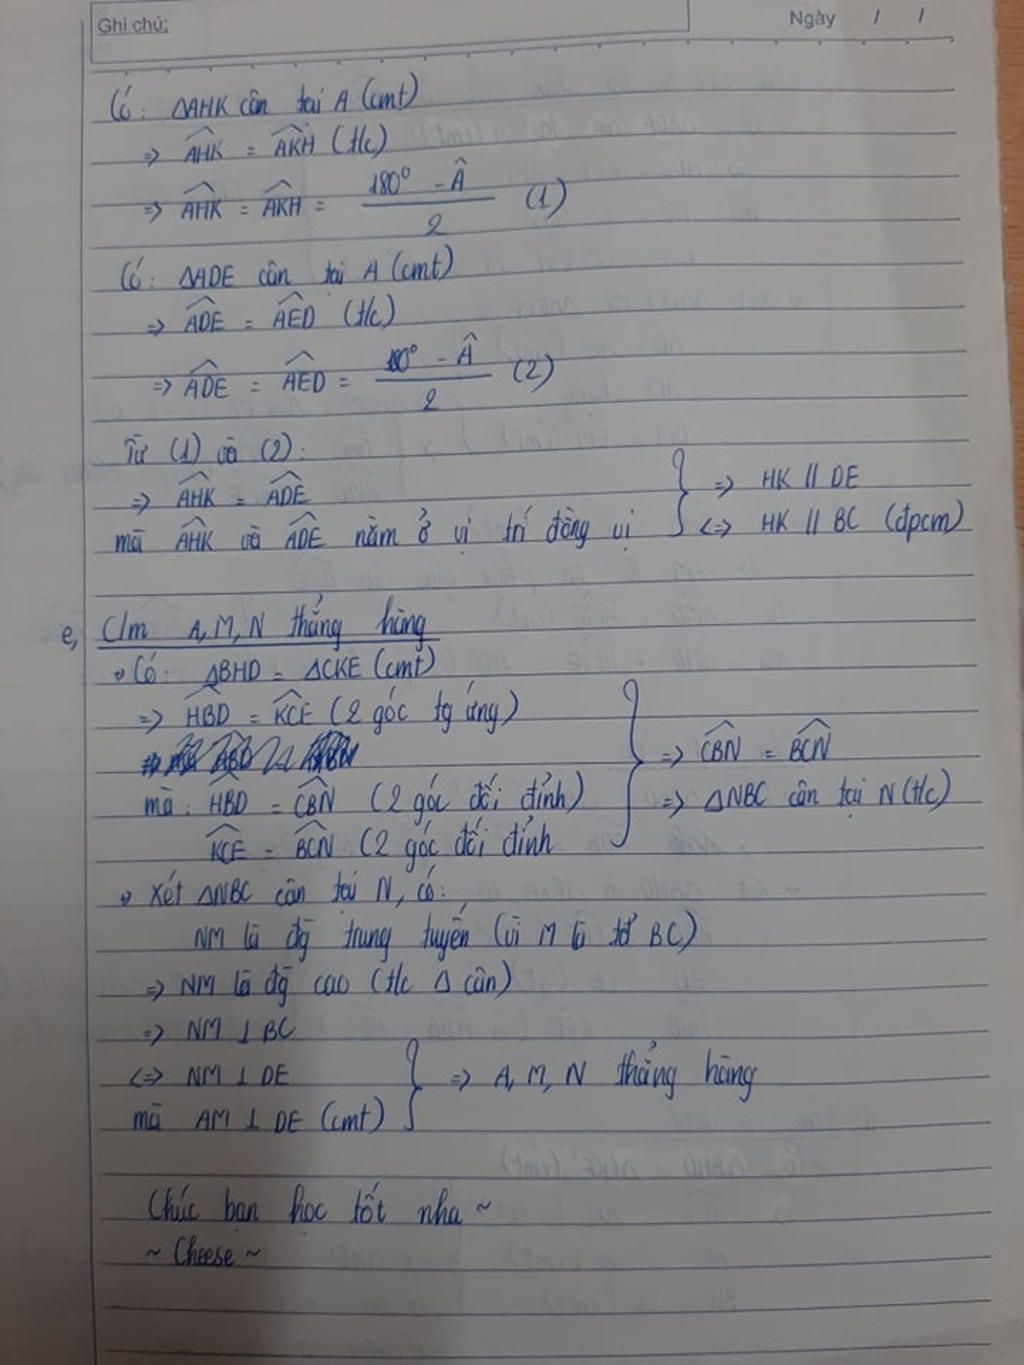 Ghi chú:
Ngày / /
Có: ΔAHK cân tại A (cmt)
=> ∠AHK = ∠AKH (t/c)
=> ∠AHK = ∠AKH = (180° - Â)/2 (1)
Có: ΔADE cân tại A (cmt)
=> ∠ADE = ∠AED (t/c)
=> ∠ADE = ∠AED = (180° - Â)/2 (2)
Từ (1) và (2):
=> ∠AHK = ∠ADE } => HK // DE
mà ∠AHK và ∠ADE nằm ở vị trí đồng vị } <=> HK // BC (đpcm)
e, C/m A, M, N thẳng hàng
+ Có: ΔBHD = ΔCKE (cmt)
=> ∠HBD = ∠KCE (2 góc tg ứng)
=> ∠CBN = ∠BCN
mà: ∠HBD = ∠CBN (2 góc đối đỉnh) } => ΔNBC cân tại N (t/c)
∠KCE = ∠BCN (2 góc đối đỉnh
+ Xét ΔNBC cân tại N, có:
NM là đg trung tuyến (vì M là tđ BC)
=> NM là đg cao (t/c Δ cân)
=> NM ⊥ BC
<=> NM ⊥ DE } => A, M, N thẳng hàng
mà AM ⊥ DE (cmt)
Chúc bạn học tốt nha ~
~ Cheese ~